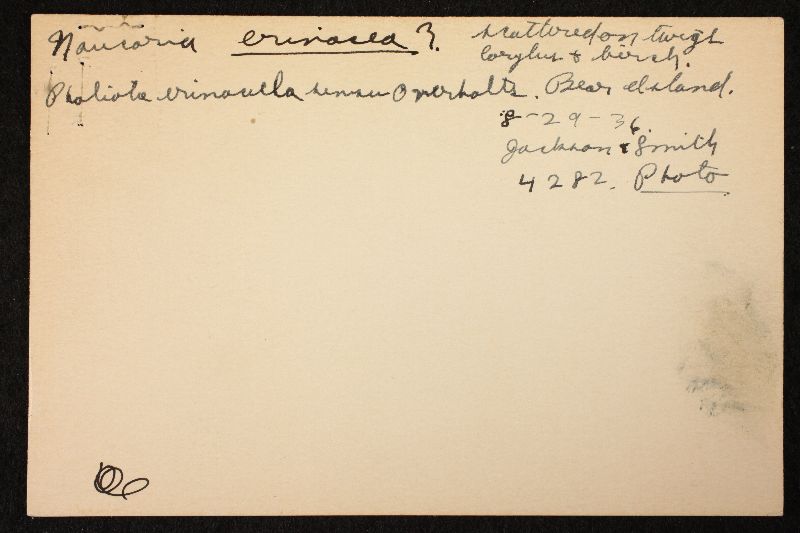 Naucoria erinacea ?
scattered on twigs
Corylus & birch.
Pholiota erinacella sensu Overholts. Bear Island.
8-29-36.
Jackson & Smith
4282. Photo